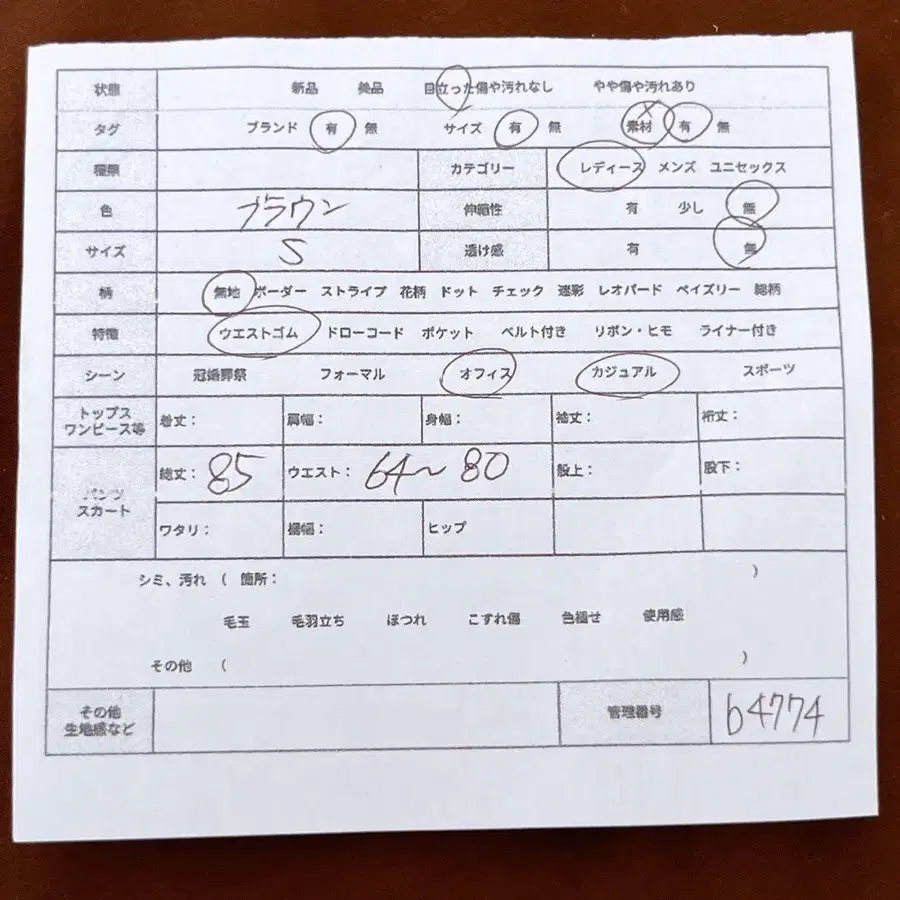 状態 新品 美品 目立った傷や汚れなし やや傷や汚れあり
タグ ブランド 有 無 サイズ 有 無 素材 有 無
種類 カテゴリー レディース メンズ ユニセックス
色 ブラウン 伸縮性 有 少し 無
サイズ S 透け感 有 無
柄 無地 ボーダー ストライプ 花柄 ドット チェック 迷彩 レオパード ペイズリー 総柄
特徴 ウエストゴム ドローコード ポケット ベルト付き リボン・ヒモ ライナー付き
シーン 冠婚葬祭 フォーマル オフィス カジュアル スポーツ
トップス
ワンピース等 着丈: 肩幅: 身幅: 袖丈: 裄丈:
パンツ
スカート 総丈: 85 ウエスト: 64〜80 股上: 股下:
ワタリ: 裾幅: ヒップ
シミ、汚れ ( 箇所: )
毛玉 毛羽立ち ほつれ こすれ傷 色褪せ 使用感
その他 ( )
その他
生地感など 管理番号 b4774